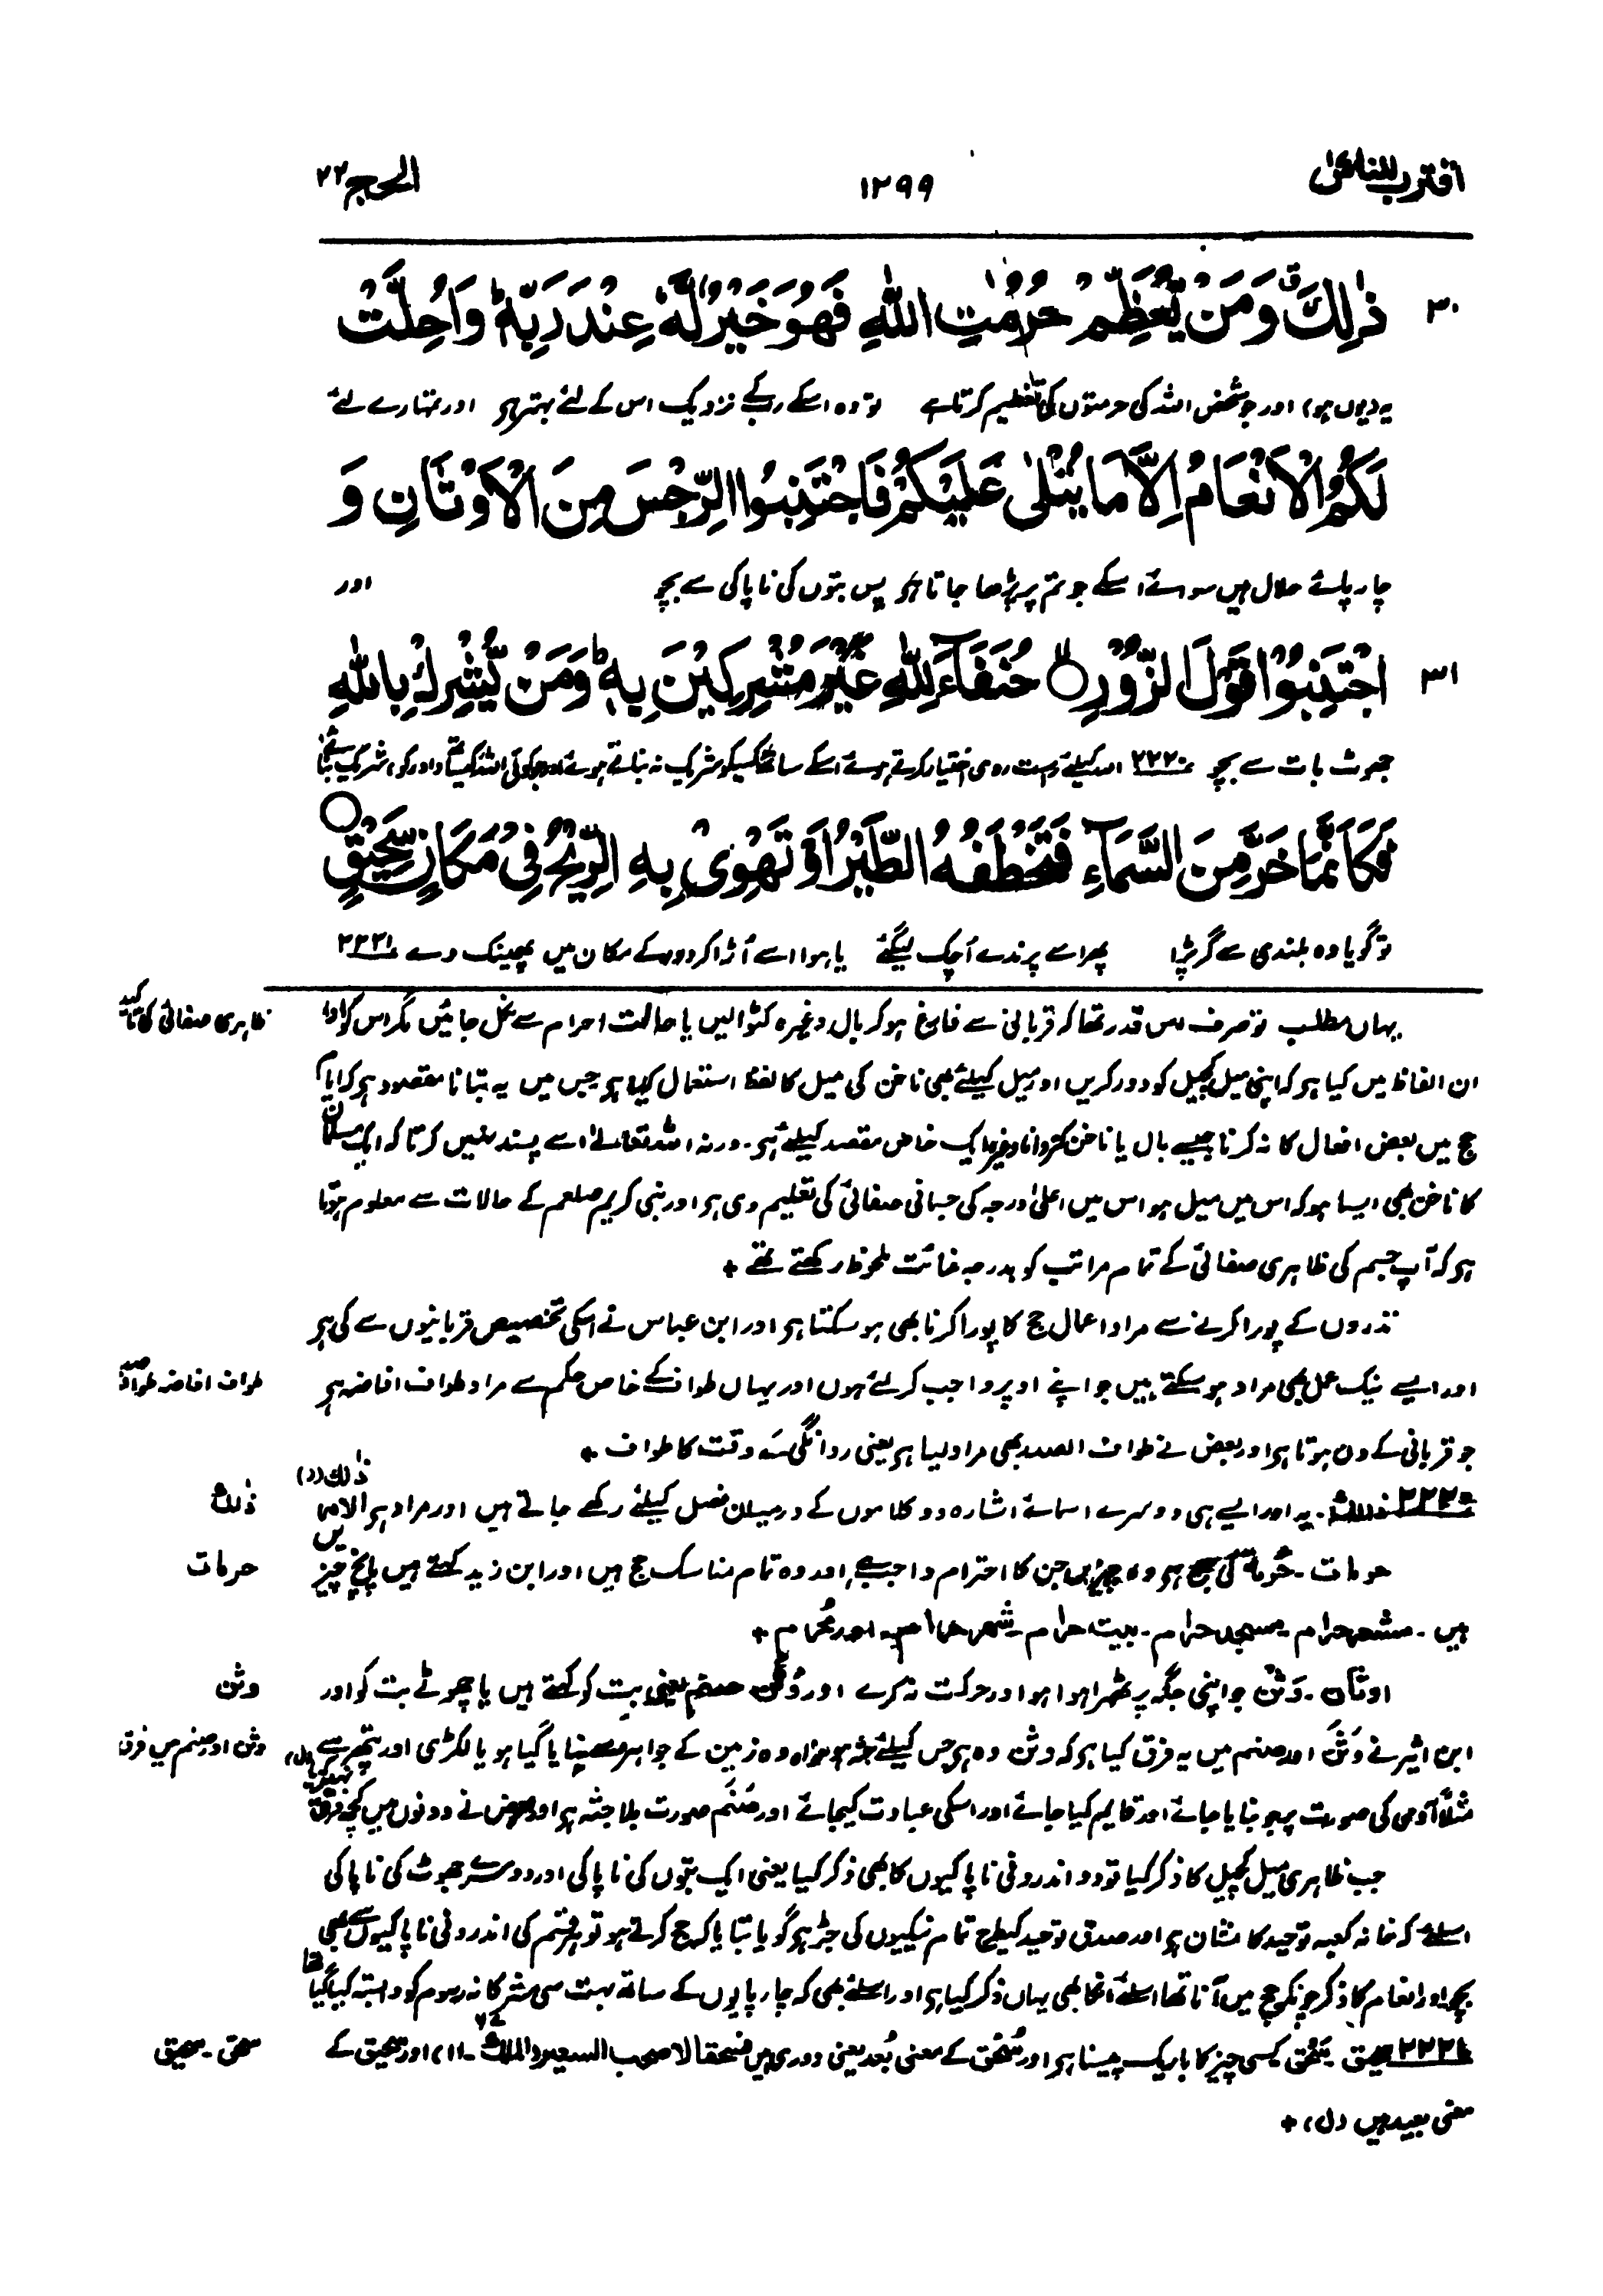 اقترب للناس ۱۲۹۹ الحج ۲۲
۳۰ ذٰلِكَ ۗ وَمَنْ يُّعَظِّمْ حُرُمٰتِ اللّٰهِ فَهُوَ خَيْرٌ لَّهٗ عِنْدَ رَبِّهٖ ؕ وَاُحِلَّتْ
یہ (یوں ہو) اور جو شخص اللہ کی حرمتوں کی تعظیم کرتا ہے تو وہ اسکے رب کے نزدیک اس کے لئے بہتر ہر اور تمہارے لئے
لَكُمُ الْاَنْعَامُ اِلَّا مَا يُتْلٰى عَلَيْكُمْ فَاجْتَنِبُوا الرِّجْسَ مِنَ الْاَوْثَانِ وَ
چارپائے حلال ہیں سوائے اسکے جو تم پر پڑھا جاتا ہو پس بتوں کی ناپاکی سے بچو اور
۳۱ اجْتَنِبُوْا قَوْلَ الزُّوْرِ ۙ حُنَفَآءَ لِلّٰهِ غَيْرَ مُشْرِكِيْنَ بِهٖ ؕ وَمَنْ يُّشْرِكْ بِاللّٰهِ
جھوٹ بات سے بچو ۲۲۲۰ اللہ کیلئے راست روی اختیار کرتے ہوئے اسکے ساتھ کسیکو شریک نہ بناتے ہوئے اور جو کوئی اللہ کیساتھ (اور کو) شریک بناتا ہے
فَكَاَنَّمَا خَرَّ مِنَ السَّمَآءِ فَتَخْطَفُهُ الطَّيْرُ اَوْ تَهْوِيْ بِهِ الرِّيْحُ فِيْ مَكَانٍ سَحِيْقٍ
تو گویا وہ بلندی سے گر پڑا پھر اسے پرندے اُچک لیگئے یا ہوا اسے اُڑا کر دور کے مکان میں پھینک دے ۲۲۲۱
ظاہری صفائی کی تاکید
یہاں مطلب تو صرف اس قدر تھا کہ قربانی سے فارغ ہو کر بال وغیرہ کٹوالیں یا حالت احرام سے نکل جائیں مگر اس کو ادا
ان الفاظ میں کیا ہر کہ اپنی میل کچیل کو دور کریں اور میل کیلئے بھی ناخن کی میل کا لفظ استعمال کیا ہر جس میں یہ بتانا مقصود ہر کہ ایام
حج میں بعض افعال کا نہ کرنا جیسے بال یا ناخن کٹروانا وغیرہ ایک خاص مقصد کیلئے ہر۔ ورنہ اللہ تعالیٰ اسے پسند نہیں کرتا کہ ایک مسلمان
کا ناخن بھی ایسا ہو کہ اس میں میل ہو اس میں اعلیٰ درجہ کی جسمانی صفائی کی تعلیم دی ہر اور نبی کریم صلعم کے حالات سے معلوم ہوتا
ہر کہ آپ جسم کی ظاہری صفائی کے تمام مراتب کو بدرجہ غائت ملحوظ رکھتے تھے +
نذروں کے پورا کرنے سے مراد اعمال حج کا پورا کرنا بھی ہو سکتا ہر اور ابن عباس نے اسکی تخصیص قربانیوں سے کی ہر
طواف افاضہ طواف صدر
اور ایسے نیک عمل بھی مراد ہو سکتے ہیں جو اپنے اوپر واجب کر لئے ہوں اور یہاں طواف کے خاص حکم سے مراد طواف افاضہ ہر
جو قربانی کے دن ہوتا ہر اور بعض نے طواف الصدر بھی مراد لیا ہر یعنی روانگی کے وقت کا طواف +
ذٰلك
۲۲۲۰ ذٰلك۔ یہ اور ایسے ہی دوسرے اسمائے اشارہ دو کلاموں کے درمیان فصل کیلئے رکھے جاتے ہیں اور مراد ہر الامر ذٰلك (ر)
حرمات
حرمات۔ حُرمة کی جمع ہر وہ چیزیں جن کا احترام واجب ہے، اور وہ تمام مناسک حج ہیں اور ابن زید کہتے ہیں پانچ چیزیں
ہیں۔ مشعر حرام۔ مسجد حرام۔ بیت حرام۔ شھر حرام۔ اور مُحرم +
وثن
اوثان۔ وَثَن جو اپنی جگہ پر ٹھہرا ہوا ہو اور حرکت نہ کرے اور وَثَن صنم یعنی بت کو کہتے ہیں یا چھوٹے بت کو اور
وثن اور صنم میں فرق
ابن اثیر نے وَثَن اور صنم میں یہ فرق کیا ہر کہ وثن وہ ہر جس کیلئے جثہ ہو خواہ وہ زمین کے جواہر سے بنایا گیا ہو یا لکڑی اور پتھر سے
مثلاً آدمی کی صورت پر جو بنایا جائے اور قایم کیا جائے اور اسکی عبادت کیجائے اور صَنَم صورت بلا جثہ ہر اور بعض نے دونوں میں کچھ فرق نہیں کیا (ل)
جب ظاہری میل کچیل کا ذکر کیا تو دو اندرونی ناپاکیوں کا بھی ذکر کیا یعنی ایک بتوں کی ناپاکی اور دوسرے جھوٹ کی ناپاکی
اسلئے کہ خانہ کعبہ توحید کا نشان ہر اور صدق توحید کیطرح تمام نیکیوں کی جڑ ہر گویا بتایا کہ حج کرتے ہو تو ہر قسم کی اندرونی ناپاکیوں سے بھی
بچو اور انعام کا ذکر چونکہ حج میں آنا تھا اسلئے انکا بھی یہاں ذکر کیا ہر اور اسلئے بھی کہ چارپایوں کے ساتھ بہت سی مشرکانہ رسوم کو وابستہ کیا گیا تھا
سحق۔ سحیق
۲۲۲۱ سحیق۔ سَحْق کسی چیز کا باریک پیسنا ہر اور سُحْق کے معنی بُعد یعنی دوری ہیں فسحقا لاصحب السعیر (الملك ۶۷۔ ۱۱)، اور سحیق کے
معنی بعید ہیں (ل) +